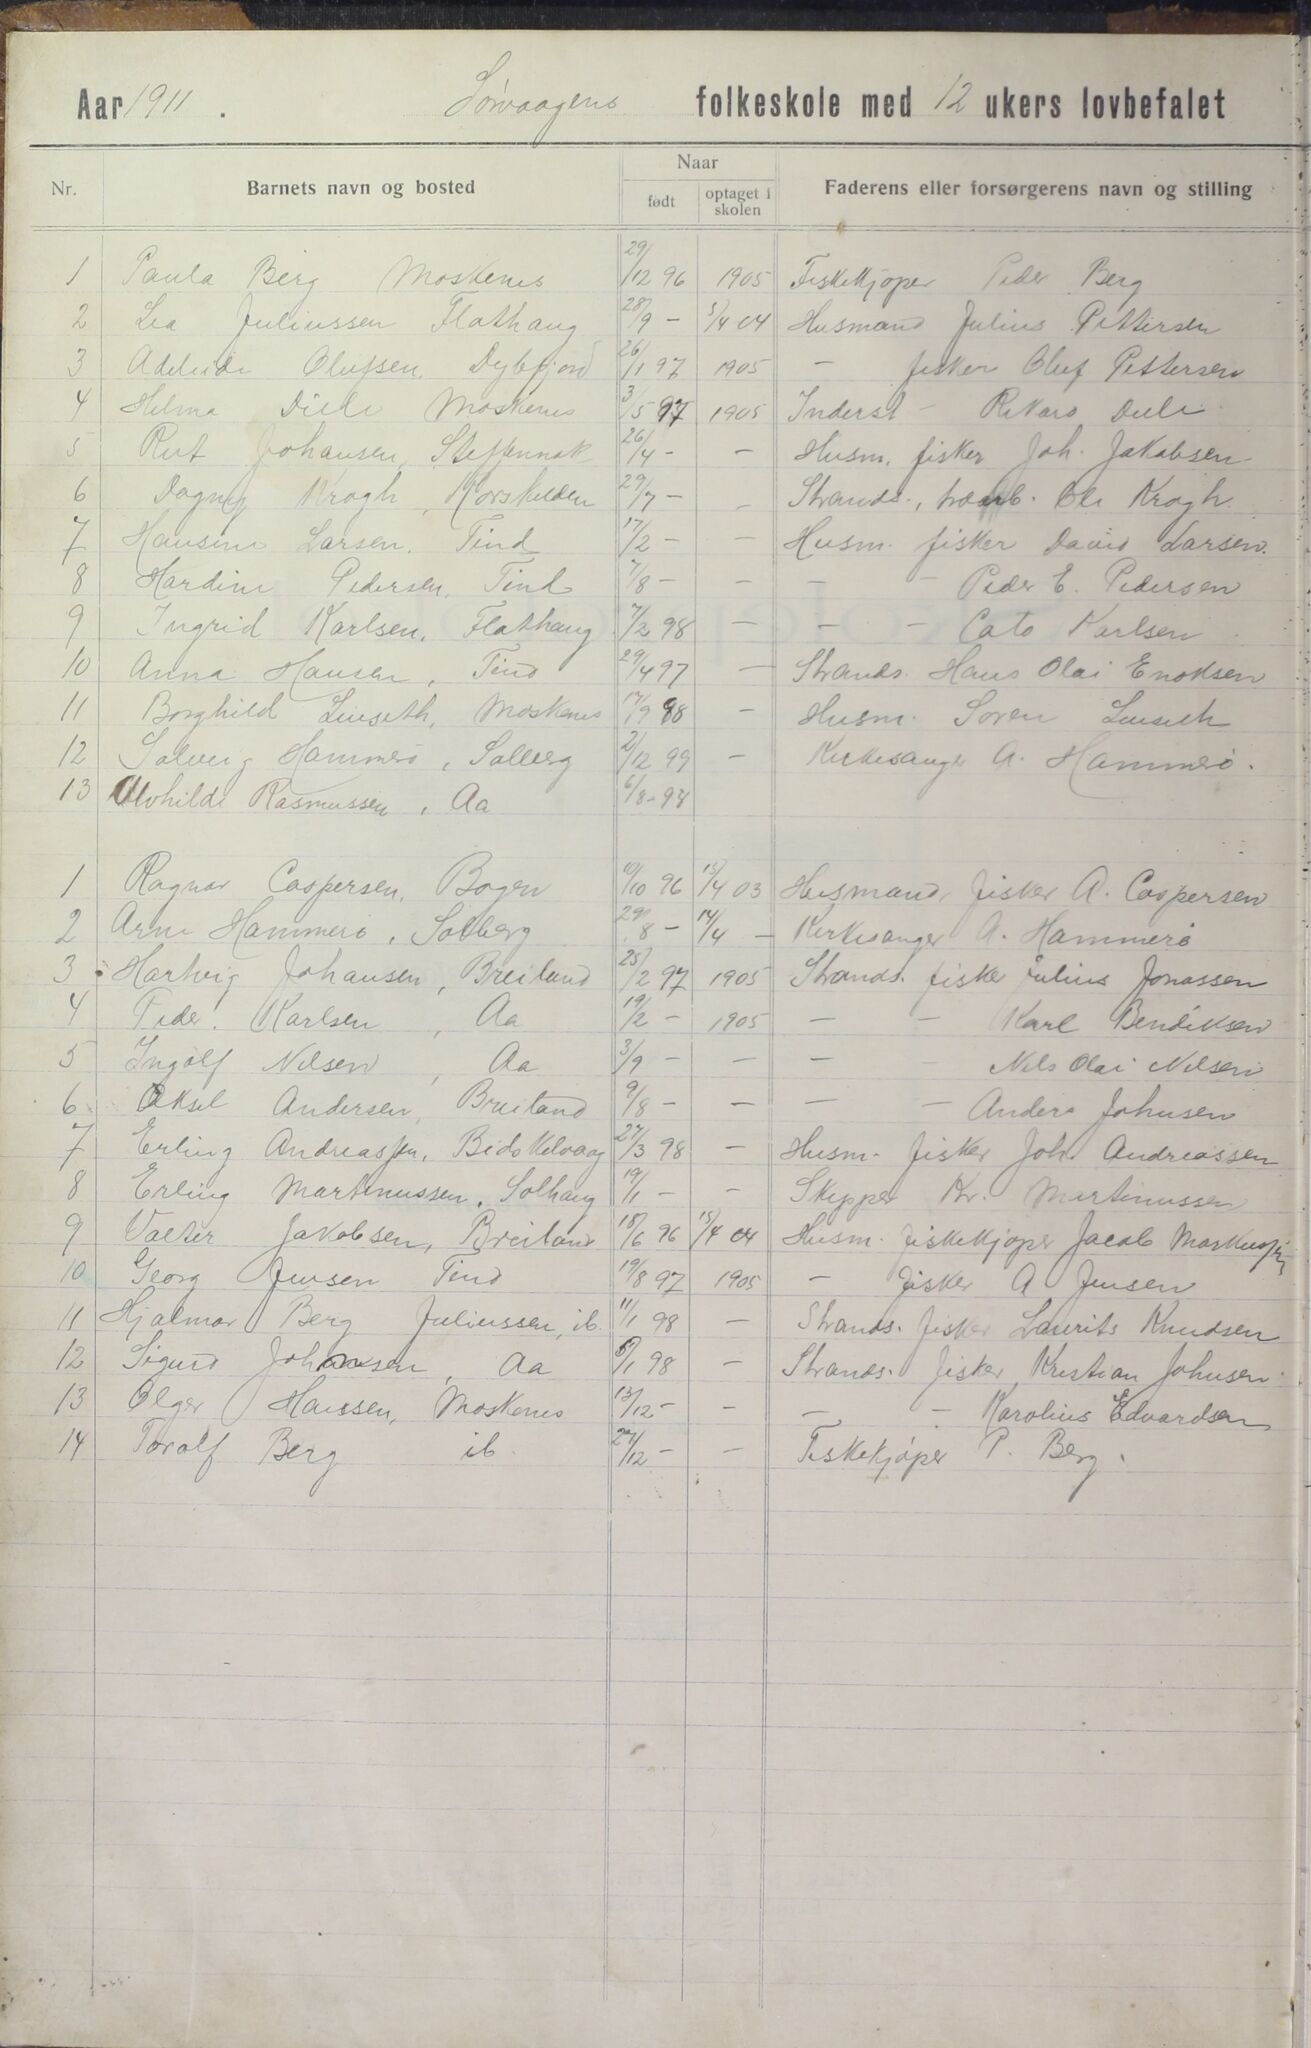 Aar 1911. Sørvaagens folkeskole med 12 ukers lovbefalet
Nr. Barnets navn og bosted Naar Faderens eller forsørgerens navn og stilling
født optaget i skolen
1 Paula Berg Moskenes 29/12 96 1905 Fiskekjøper Peder Berg
2 Lea Juliussen Flathaug 28/9 - 5/4 04 Husmand Julius Pettersen
3 Adeleide Olufsen, Dybfjord 26/1 97 1905 - fisker Oluf Pettersen
4 Helma Dile Moskenes 3/5 97 1905 Inderst - Rikard Dile
5 Rut Johansen, Steffennak 26/4 - - Husm. fisker Joh. Jakobsen
6 Dagny Krogh, Korskilden 29/7 - - Strands., træarb. Ole Krogh
7 Hansine Larsen. Tind 17/2 - - Husm. fisker David Larsen.
8 Hardine Pedersen, Tind 7/8 - - - - Peder E. Pedersen
9 Ingrid Karlsen, Flathaug 7/2 98 - - - Cato Karlsen
10 Anna Hansen, Tind 29/4 97 - Strands. Hans Olai Enoksen
11 Borghild Linseth, Moskenes 17/9 98 - Husm. Søren Linseth
12 Solveig Hammerø, Solberg 2/12 99 - Kirkesanger A. Hammerø.
13 Alvhilde Rasmussen, Aa 6/8-98
1 Ragnar Caspersen, Bogen 10/10 96 15/4 03 Husmand, fisker A. Caspersen
2 Arne Hammerø, Solberg 29/8 - 14/4 - Kirkesanger A. Hammerø
3 Hartvig Johansen, Breiland 25/2 97 1905 Strands. fisker Julius Jonassen
4 Peder. Karlsen, Aa 19/2 - 1905 - - Karl Bendiksen
5 Ingolf Nilsen, Aa 3/9 - - - - Nils Olai Nilsen
6 Aksel Andersen, Breiland 9/8 - - - - Anders Johnsen
7 Erling Andreassen, Bidskelvaag 27/3 98 - Husm. fisker Joh. Andreassen
8 Erling Martinussen, Solhaug 19/1 - - Skipper Kr. Martinussen
9 Valter Jakobsen, Breiland 18/6 96 15/4 04 Husm. fiskekjøper Jacob Markussen
10 Georg Jensen Tind 19/8 97 1905 - fisker A Jensen
11 Hjalmar Berg Juliussen, ib. 11/1 98 - Strands. fisker Laurits Knudsen
12 Sigurd Johansen, Aa 8/1 98 - Strands. fisker Kristian Johnsen
13 Olger Hanssen, Moskenes 13/12 - - - - Karolius Edvardsen
14 Toralf Berg ib. 24/12 - - Fiskekjøper P. Berg.